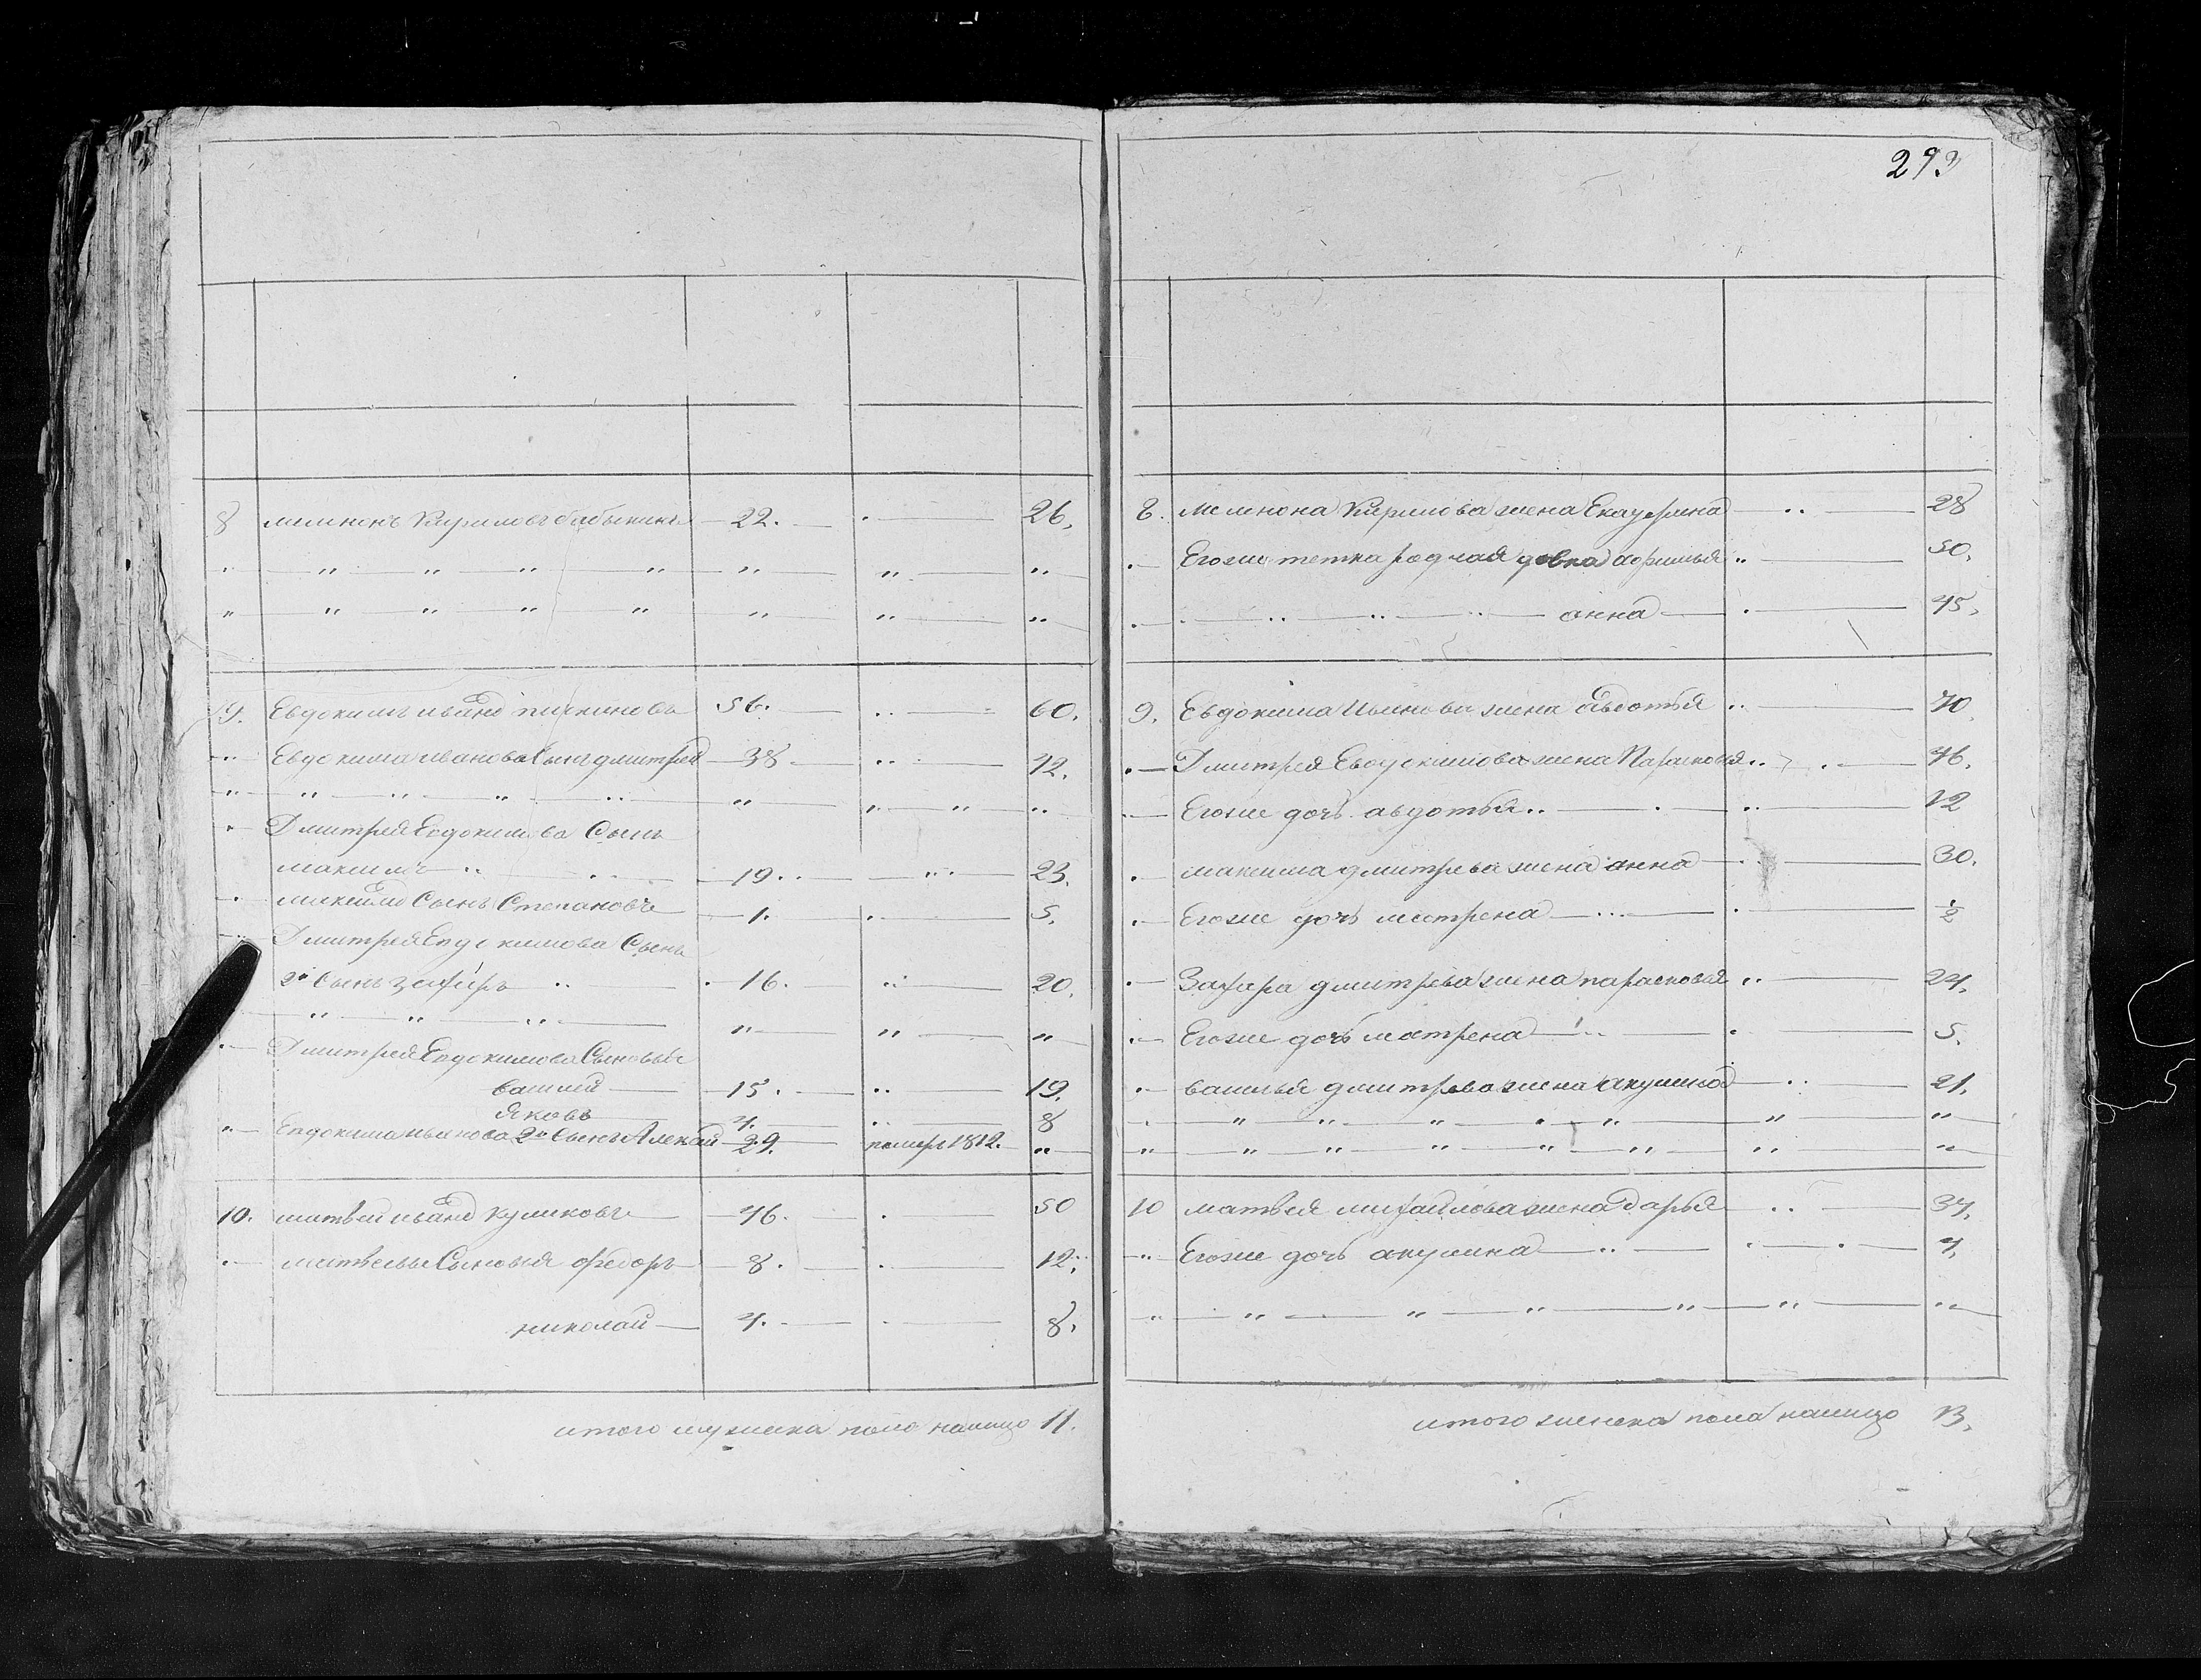 293
8 мелнонъ Кириловъ бабыкинъ 22. 26.
9. Евдокимъ ивановъ 56. 60.
Евдокима иванова Сынъ дмитрей 38 42.
Дмитрея Евдокимова Сынъ
максимъ 19. 23.
максимовъ Сынъ Степановъ 1. 5.
Дмитрея Евдокимова Сынъ
2й Сынъ захаръ 16. 20.
Дмитрея Евдокимова Сыновья
василей 15. 19.
Яковъ 4. 8
Евдокима иванова 2й Сынъ Алексей 29. померъ 1812.
10. матвей ивановъ куликовъ 46. 50
матвеевы Сыновья федоръ 8. 12.
николай 4. 8.
итого мужеска пола налицо 11.
8. мелнона Кирилова жена Екатерина 28
Егоже тетка родная девка афимья 50.
анна 45.
9. Евдокима Иванова жена авдотья 70
Дмитрея Евдокимова жена Парасковья 46.
Егоже дочь авдотья 12
максима дмитрева жена анна 30.
Егоже дочь матрена ½
Захара дмитрева жена парасковья 24.
Егоже дочь матрена 5.
василья дмитрева жена акулина 21.
10 матвея михайлова жена дарья 37.
Егоже дочь акулина 4.
итого женска пола налицо 13.